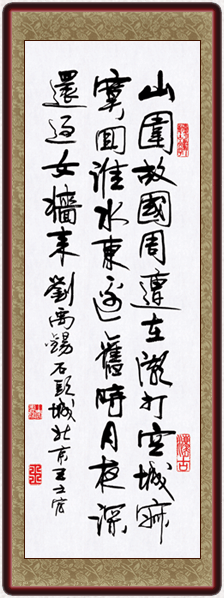 山圍故國周遭在潮打空城寂
寞回淮水東邊舊時月夜深
還過女牆來 劉禹錫石頭城 北京王